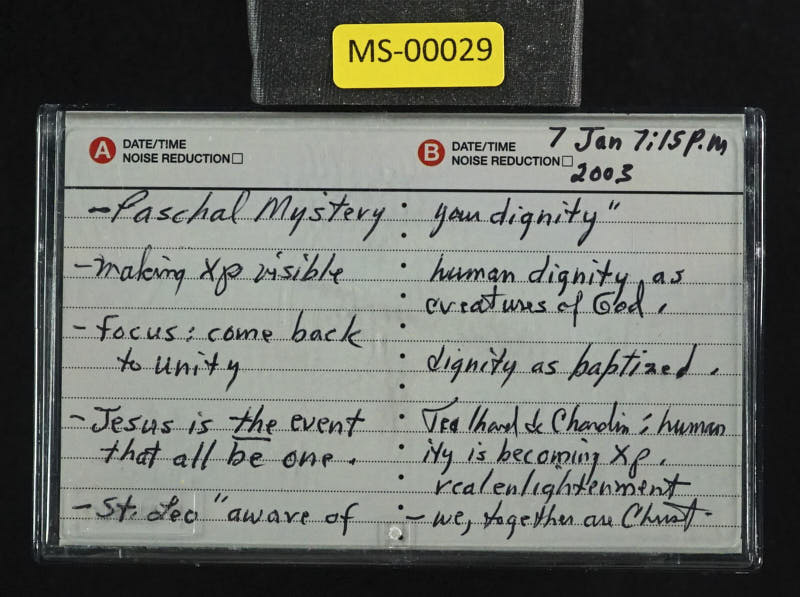 MS-00029
A DATE/TIME
NOISE REDUCTION
B DATE/TIME
NOISE REDUCTION
7 Jan 7:15 P.M
2003
- Paschal Mystery
- making Xp visible
- Focus: come back
to unity
- Jesus is the event
that all be one.
- St. Leo "aware of
your dignity"
human dignity as
creatures of God.
dignity as baptized.
Teilhard de Chardin: human
ity is becoming Xp.
real enlightenment
- we, together are Christ.